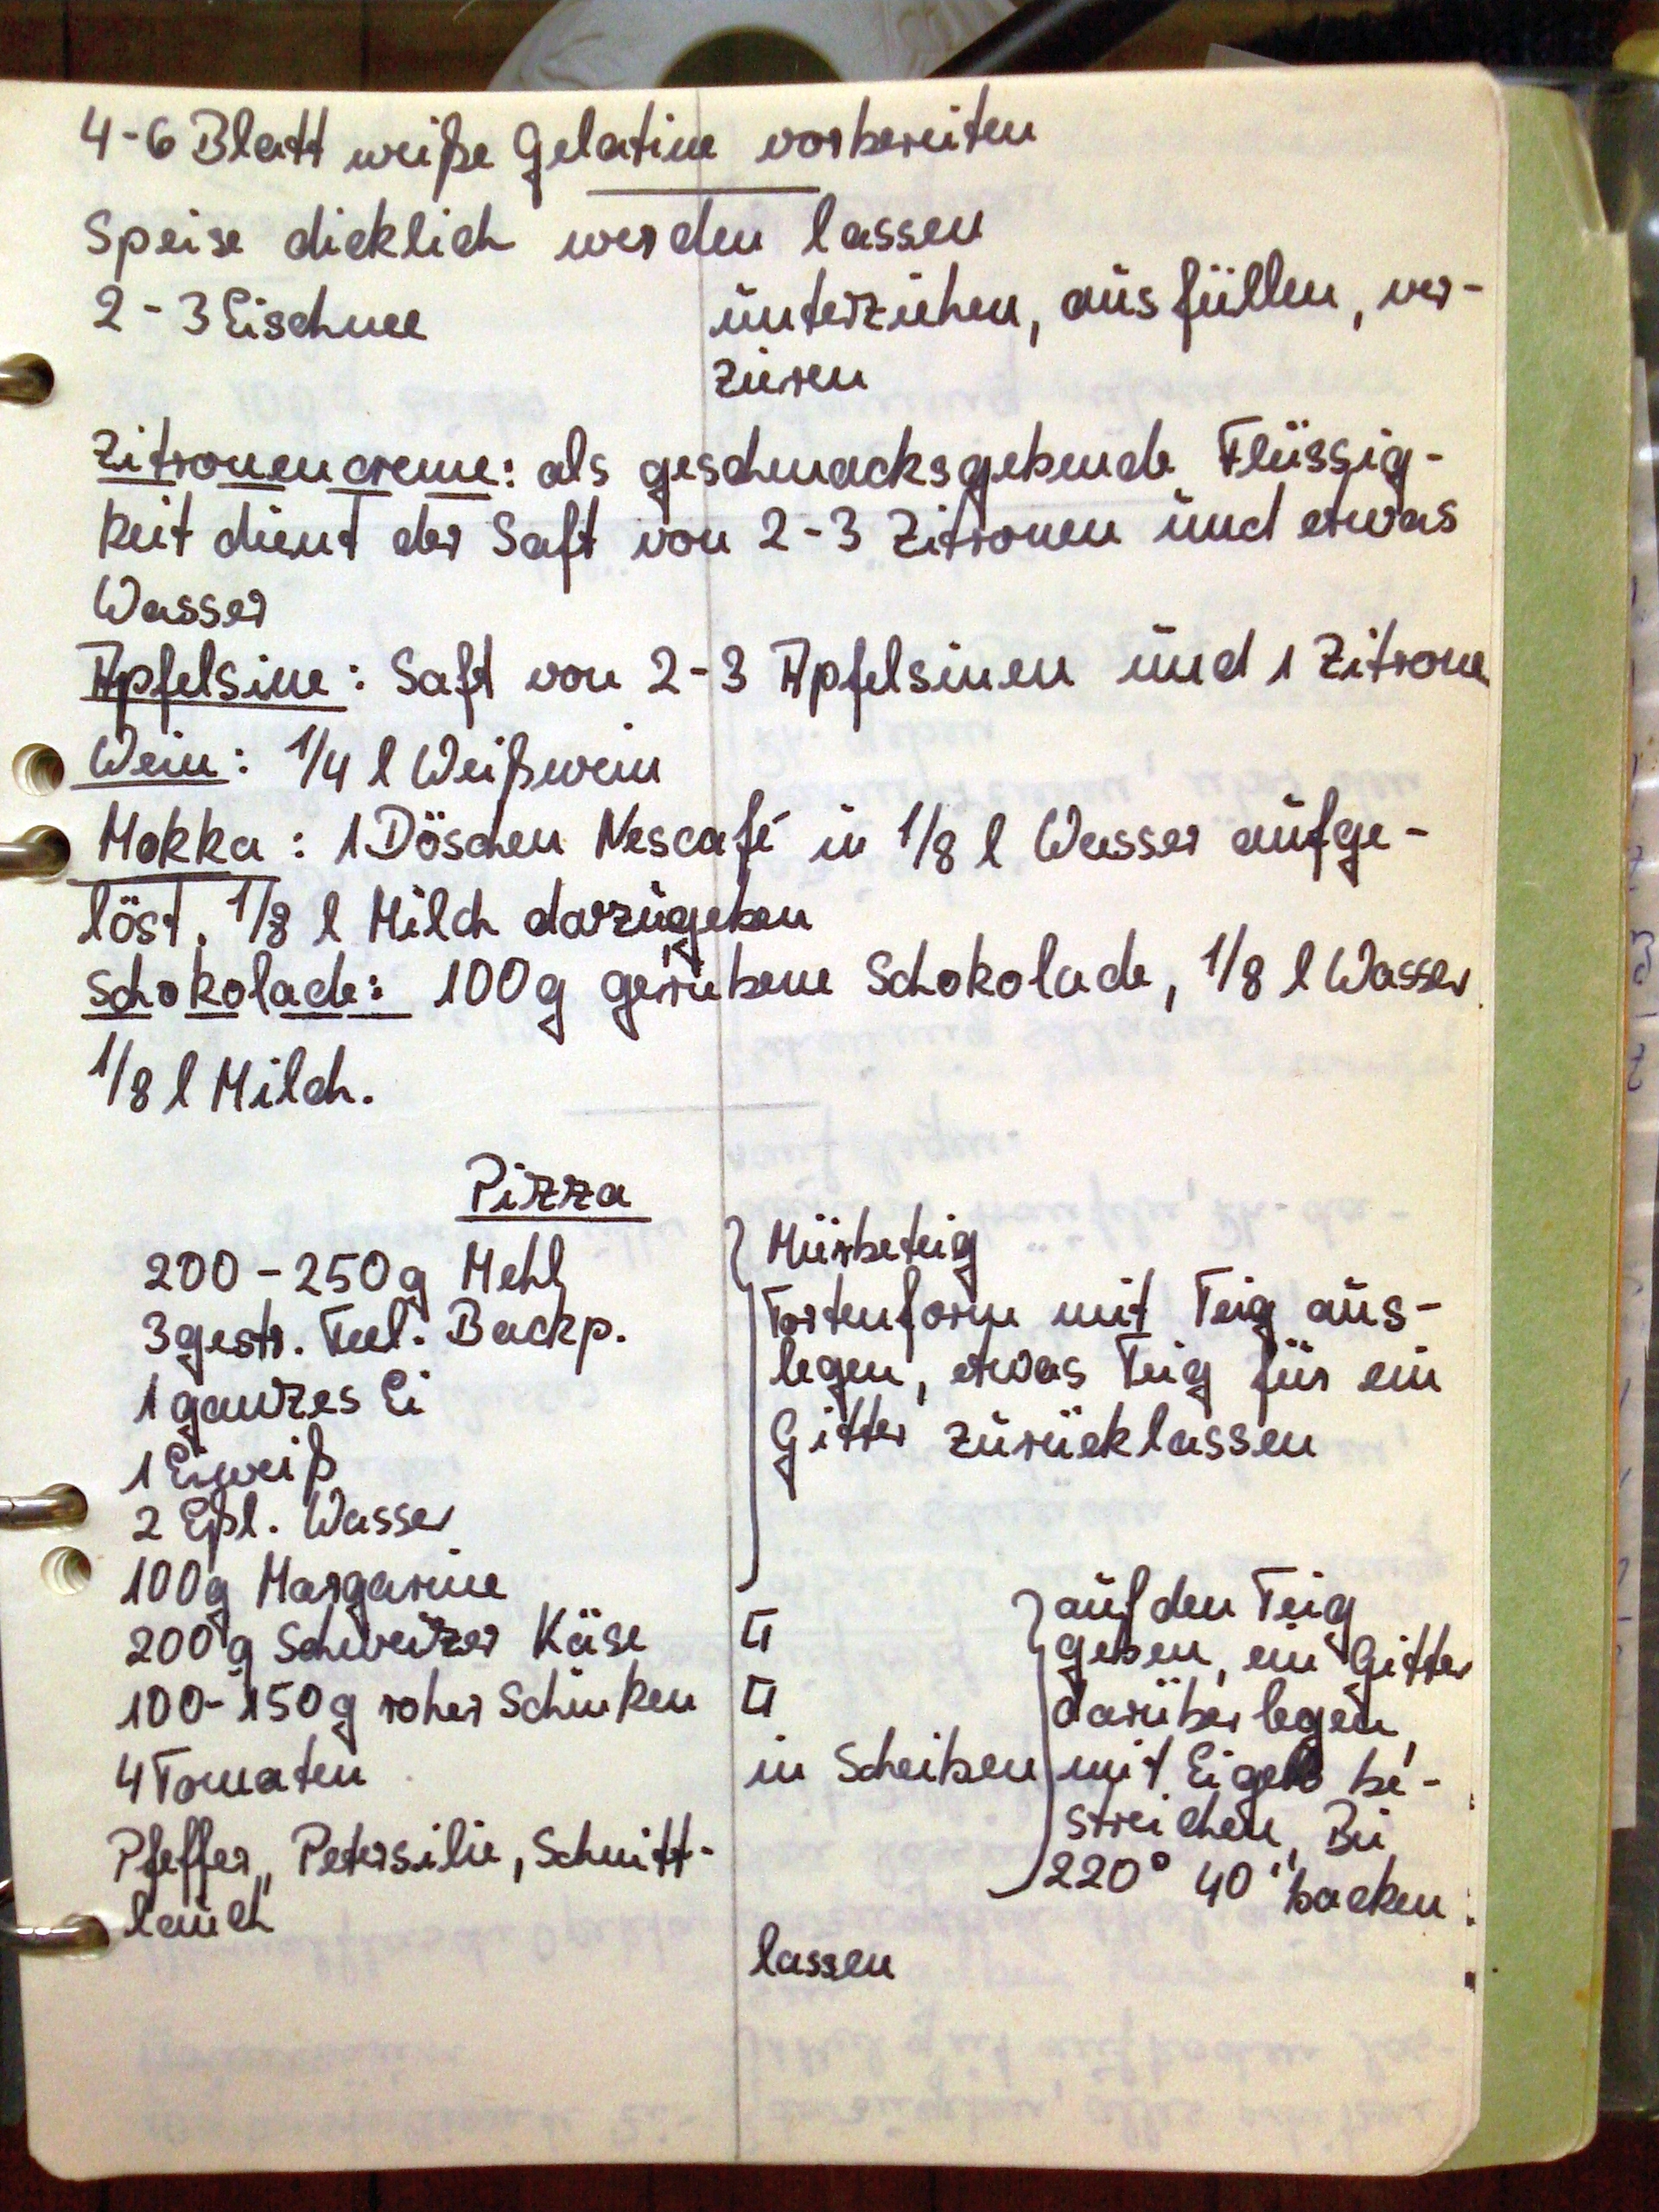 4-6 Blatt weiße Gelatine vorbereiten
Speise dicklich werden lassen
2-3 Eischnee unterziehen, ausfüllen, ver-
zieren
Zitronencreme: als geschmacksgebende Flüssig-
keit dient der Saft von 2-3 Zitronen und etwas
Wasser
Apfelsine: Saft von 2-3 Apfelsinen und 1 Zitrone
Wein: 1/4 l Weißwein
Mokka: 1 Döschen Nescafé in 1/8 l Wasser aufge-
löst, 1/8 l Milch dazugeben
Schokolade: 100g geriebene Schokolade, 1/8 l Wasser
1/8 l Milch.
Pizza
200-250g Mehl
3 gestr. Teel. Backp.
1 ganzes Ei
1 Eiweiß
2 Eßl. Wasser
100g Margarine
Mürbeteig
Tortenform mit Teig aus-
legen, etwas Teig für ein
Gitter zurücklassen
200g Schweizer Käse
100-150g roher Schinken
4 Tomaten in Scheiben
Pfeffer, Petersilie, Schnitt-
lauch
auf den Teig
geben, ein Gitter
darüber legen,
mit Eigelb be-
streichen, Bei
220° 40" backen
lassen